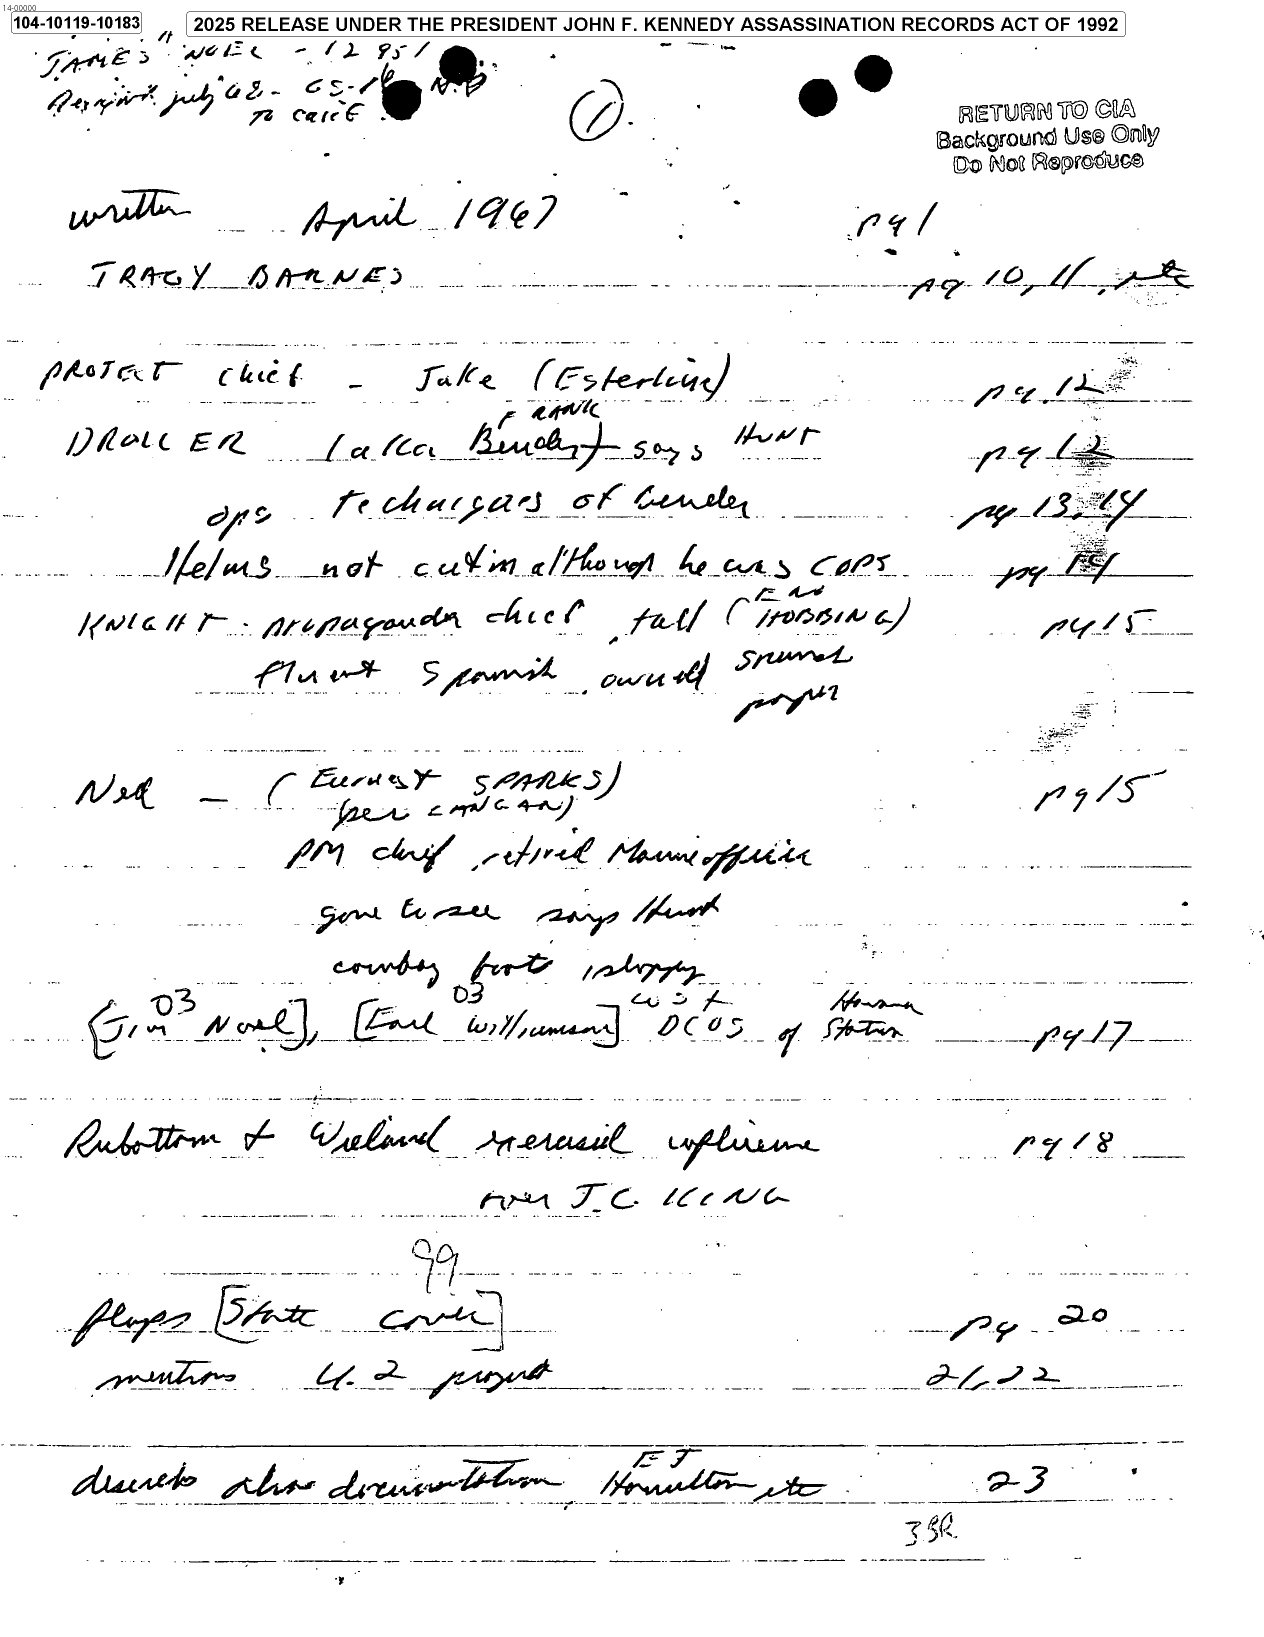 14-00000
104-10119-10183
2025 RELEASE UNDER THE PRESIDENT JOHN F. KENNEDY ASSASSINATION RECORDS ACT OF 1992
JAMES NOEL - 12 951
july 62 - GS-16
to
1.
RETURN TO CIA
Background Use Only
Do Not Reproduce
written April 1967 pg 1
TRACY BARNES pg 10, 11, etc
PROJECT chief - Jake (Esterline) pg. 12
FRANK
DROLLER (aka Bender) says HUNT pg 12
ops techniques of bender pg 13, 14
Helms not cut in although he was COPS pg 14
KNIGHT - propaganda chief, tall (HOBBING) pg 15
fluent Spanish, owned
paper
Ned - (Earnest SPARKS) pg 15
(per LANGAN)
PM chief, retired Marine officer
gone to see says Hunt
cowboy boots, sloppy
03 03 Havana
[Jim Noel], [Earl Williamson] DCOS of Station pg 17
Rubottom + Wieland exercised influence pg 18
over J.C. KING
99
[State cover] pg 20
mentions U-2 project 21, 22
EJ
documentation, Hamilton etc 23
3 BR